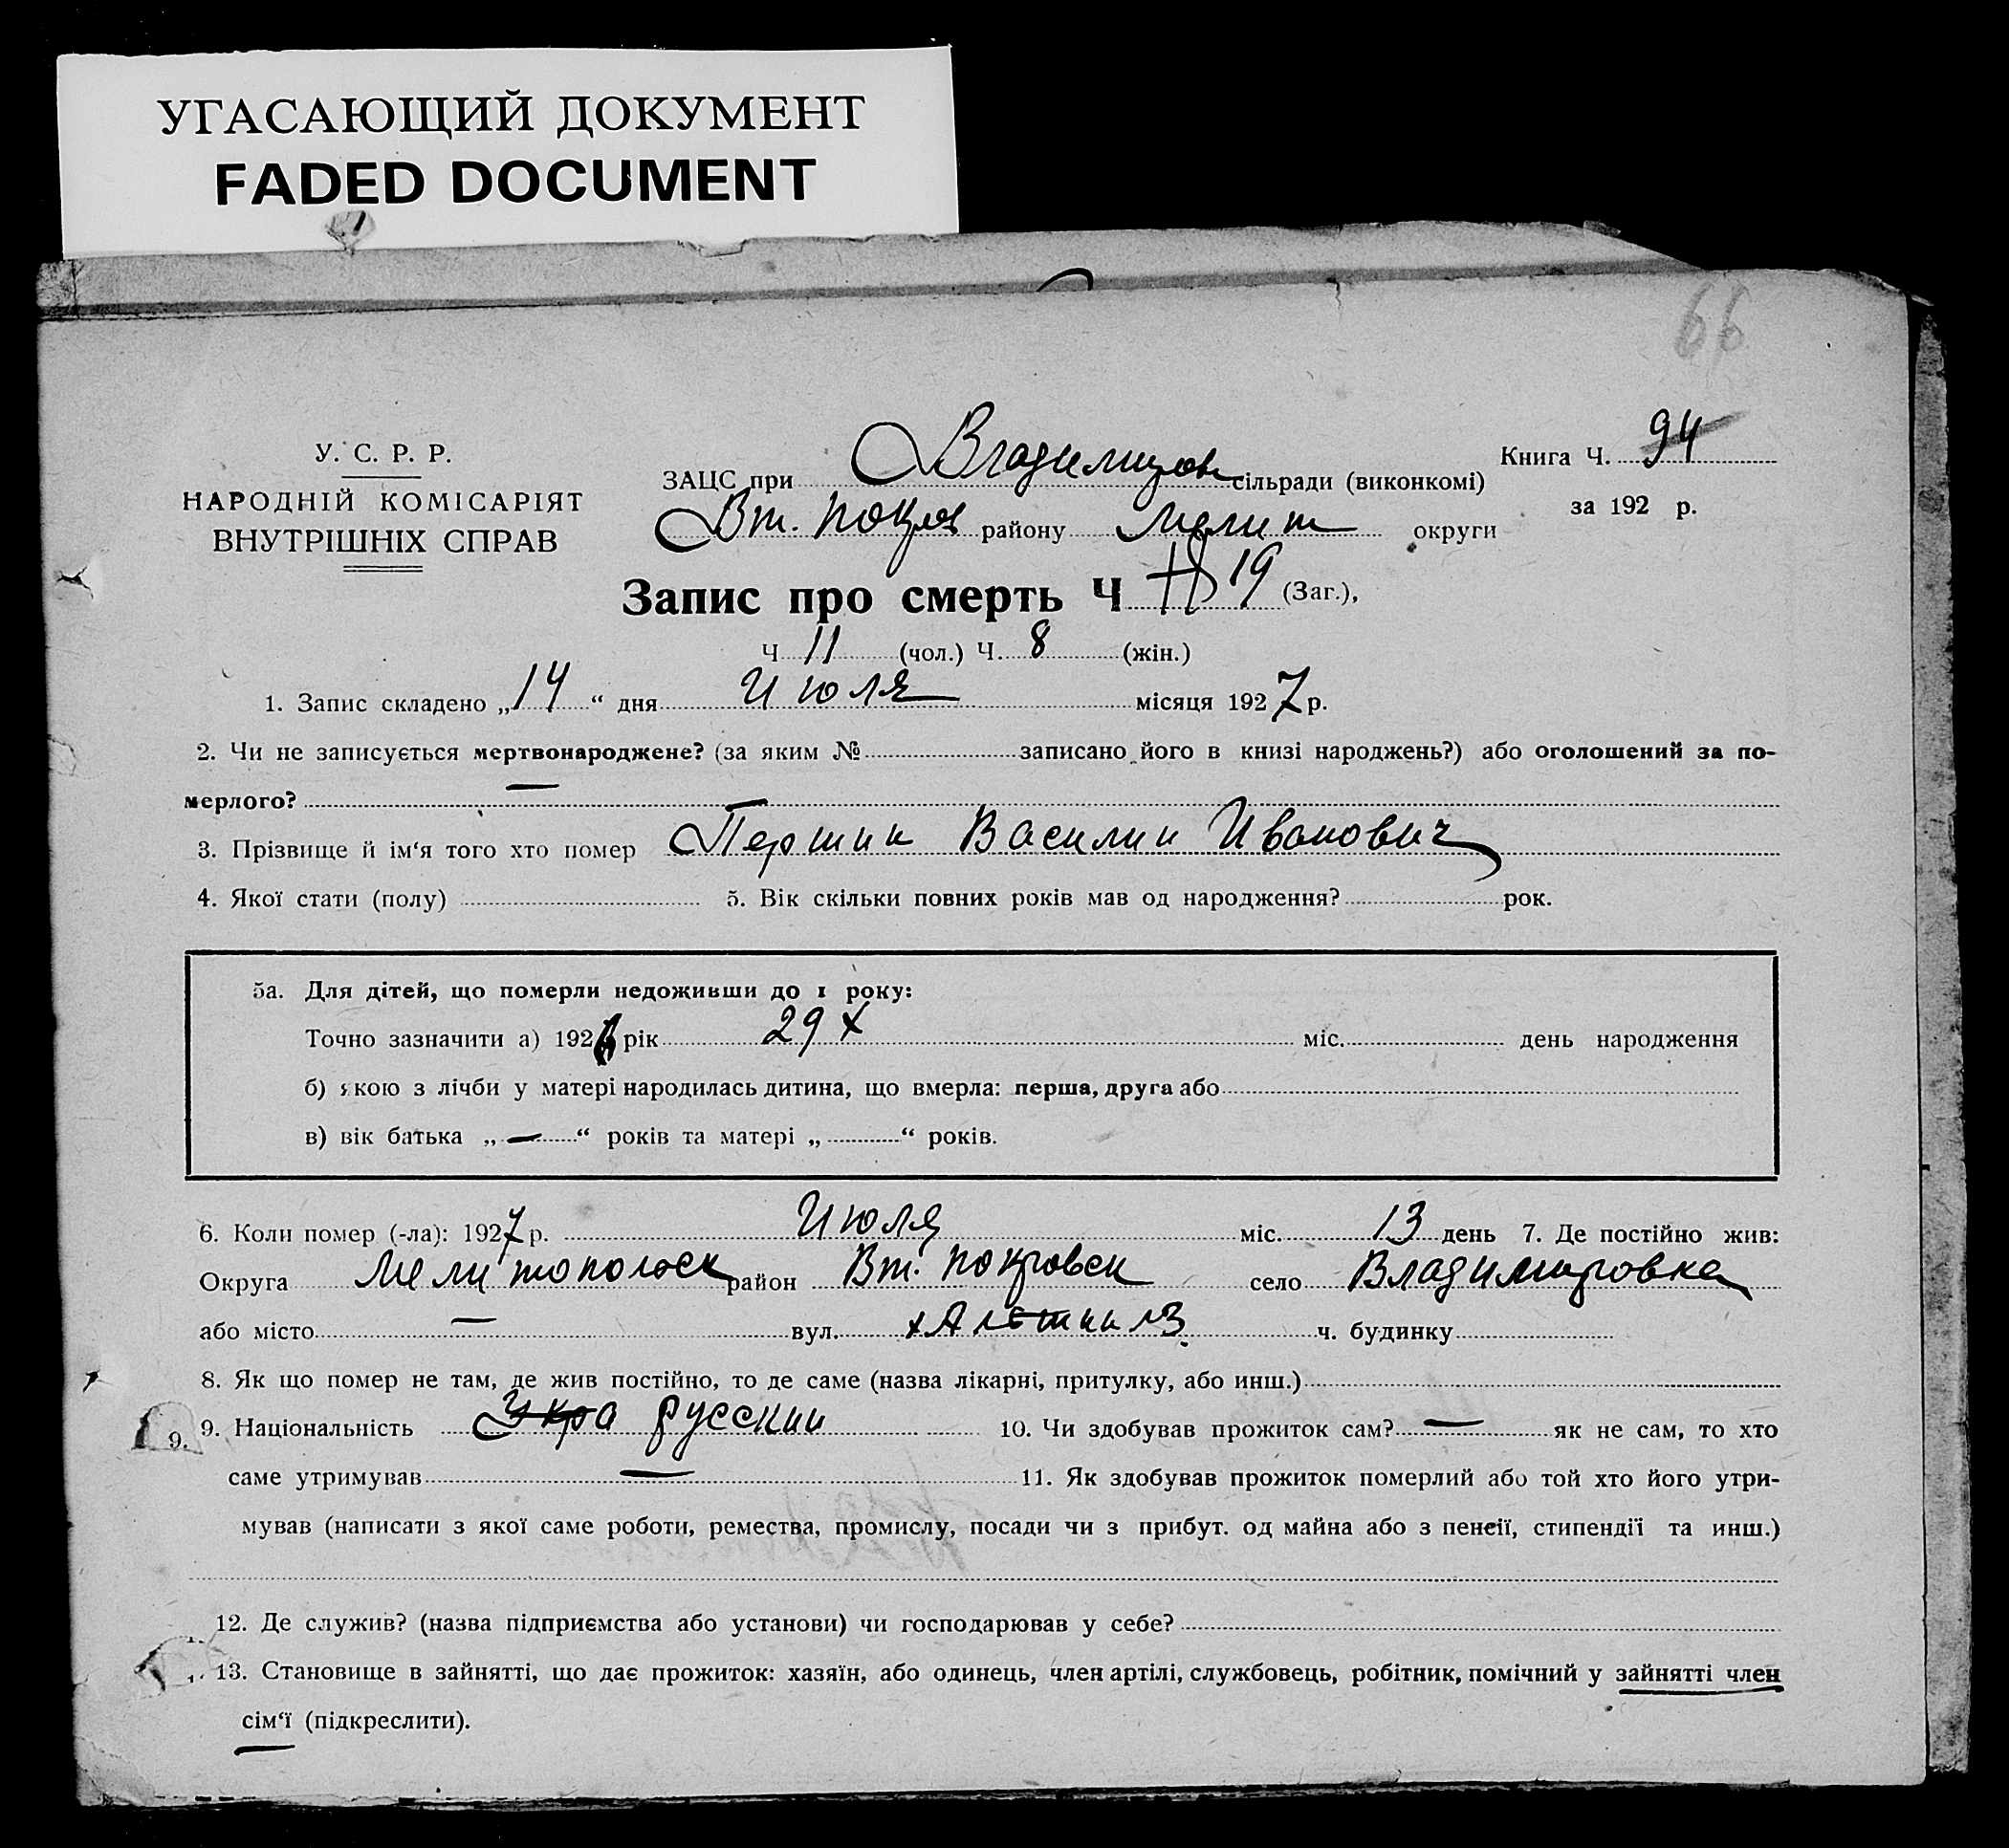 УГАСАЮЩИЙ ДОКУМЕНТ
FADED DOCUMENT
66
У. С. Р. Р.
НАРОДНІЙ КОМІСАРІЯТ
ВНУТРІШНІХ СПРАВ
ЗАЦС при Владимиров сільради (виконкомі)
Книга Ч. 94
за 192 р.
Вт. Покров району Мелит округи
Запис про смерть Ч 19 (Заг.),
Ч 11 (чол.) Ч. 8 (жін.)
1. Запис складено „14“ дня Июля місяця 1927 р.
2. Чи не записується мертвонароджене? (за яким № записано його в книзі народжень?) або оголошений за по-
мерлого? —
3. Прізвище й ім‘я того хто помер Першин Василии Иванович
4. Якої стати (полу) 5. Вік скільки повних років мав од народження? рок.
5а. Для дітей, що померли недоживши до 1 року:
Точно зазначити а) 192 рік 29 X міс. день народження
б) якою з лічби у матері народилась дитина, що вмерла: перша, друга або
в) вік батька „—“ років та матері „ “ років.
6. Коли помер (-ла): 1927 р. Июля міс. 13 день 7. Де постійно жив:
Округа Мелитопольск район Вт. Покровск село Владимировка
або місто — вул. ч. будинку
8. Як що помер не там, де жив постійно, то де саме (назва лікарні, притулку, або инш.)
9. 9. Національність Укра русскии 10. Чи здобував прожиток сам? — як не сам, то хто
саме утримував — 11. Як здобував прожиток померлий або той хто його утри-
мував (написати з якої саме роботи, ремества, промислу, посади чи з прибут. од майна або з пенсії, стипендії та инш.)
12. Де служив? (назва підприємства або установи) чи господарював у себе?
13. Становище в зайнятті, що дає прожиток: хазяїн, або одинець, член артілі, службовець, робітник, помічний у зайнятті член
сім‘ї (підкреслити).